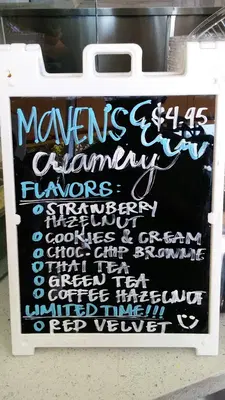 MAVEN'S $4.95
Creamery
FLAVORS:
STRAWBERRY
HAZELNUT
COOKIES & CREAM
CHOC-CHIP BROWNIE
THAI TEA
GREEN TEA
COFFEE HAZELNUT
LIMITED TIME!!!
RED VELVET